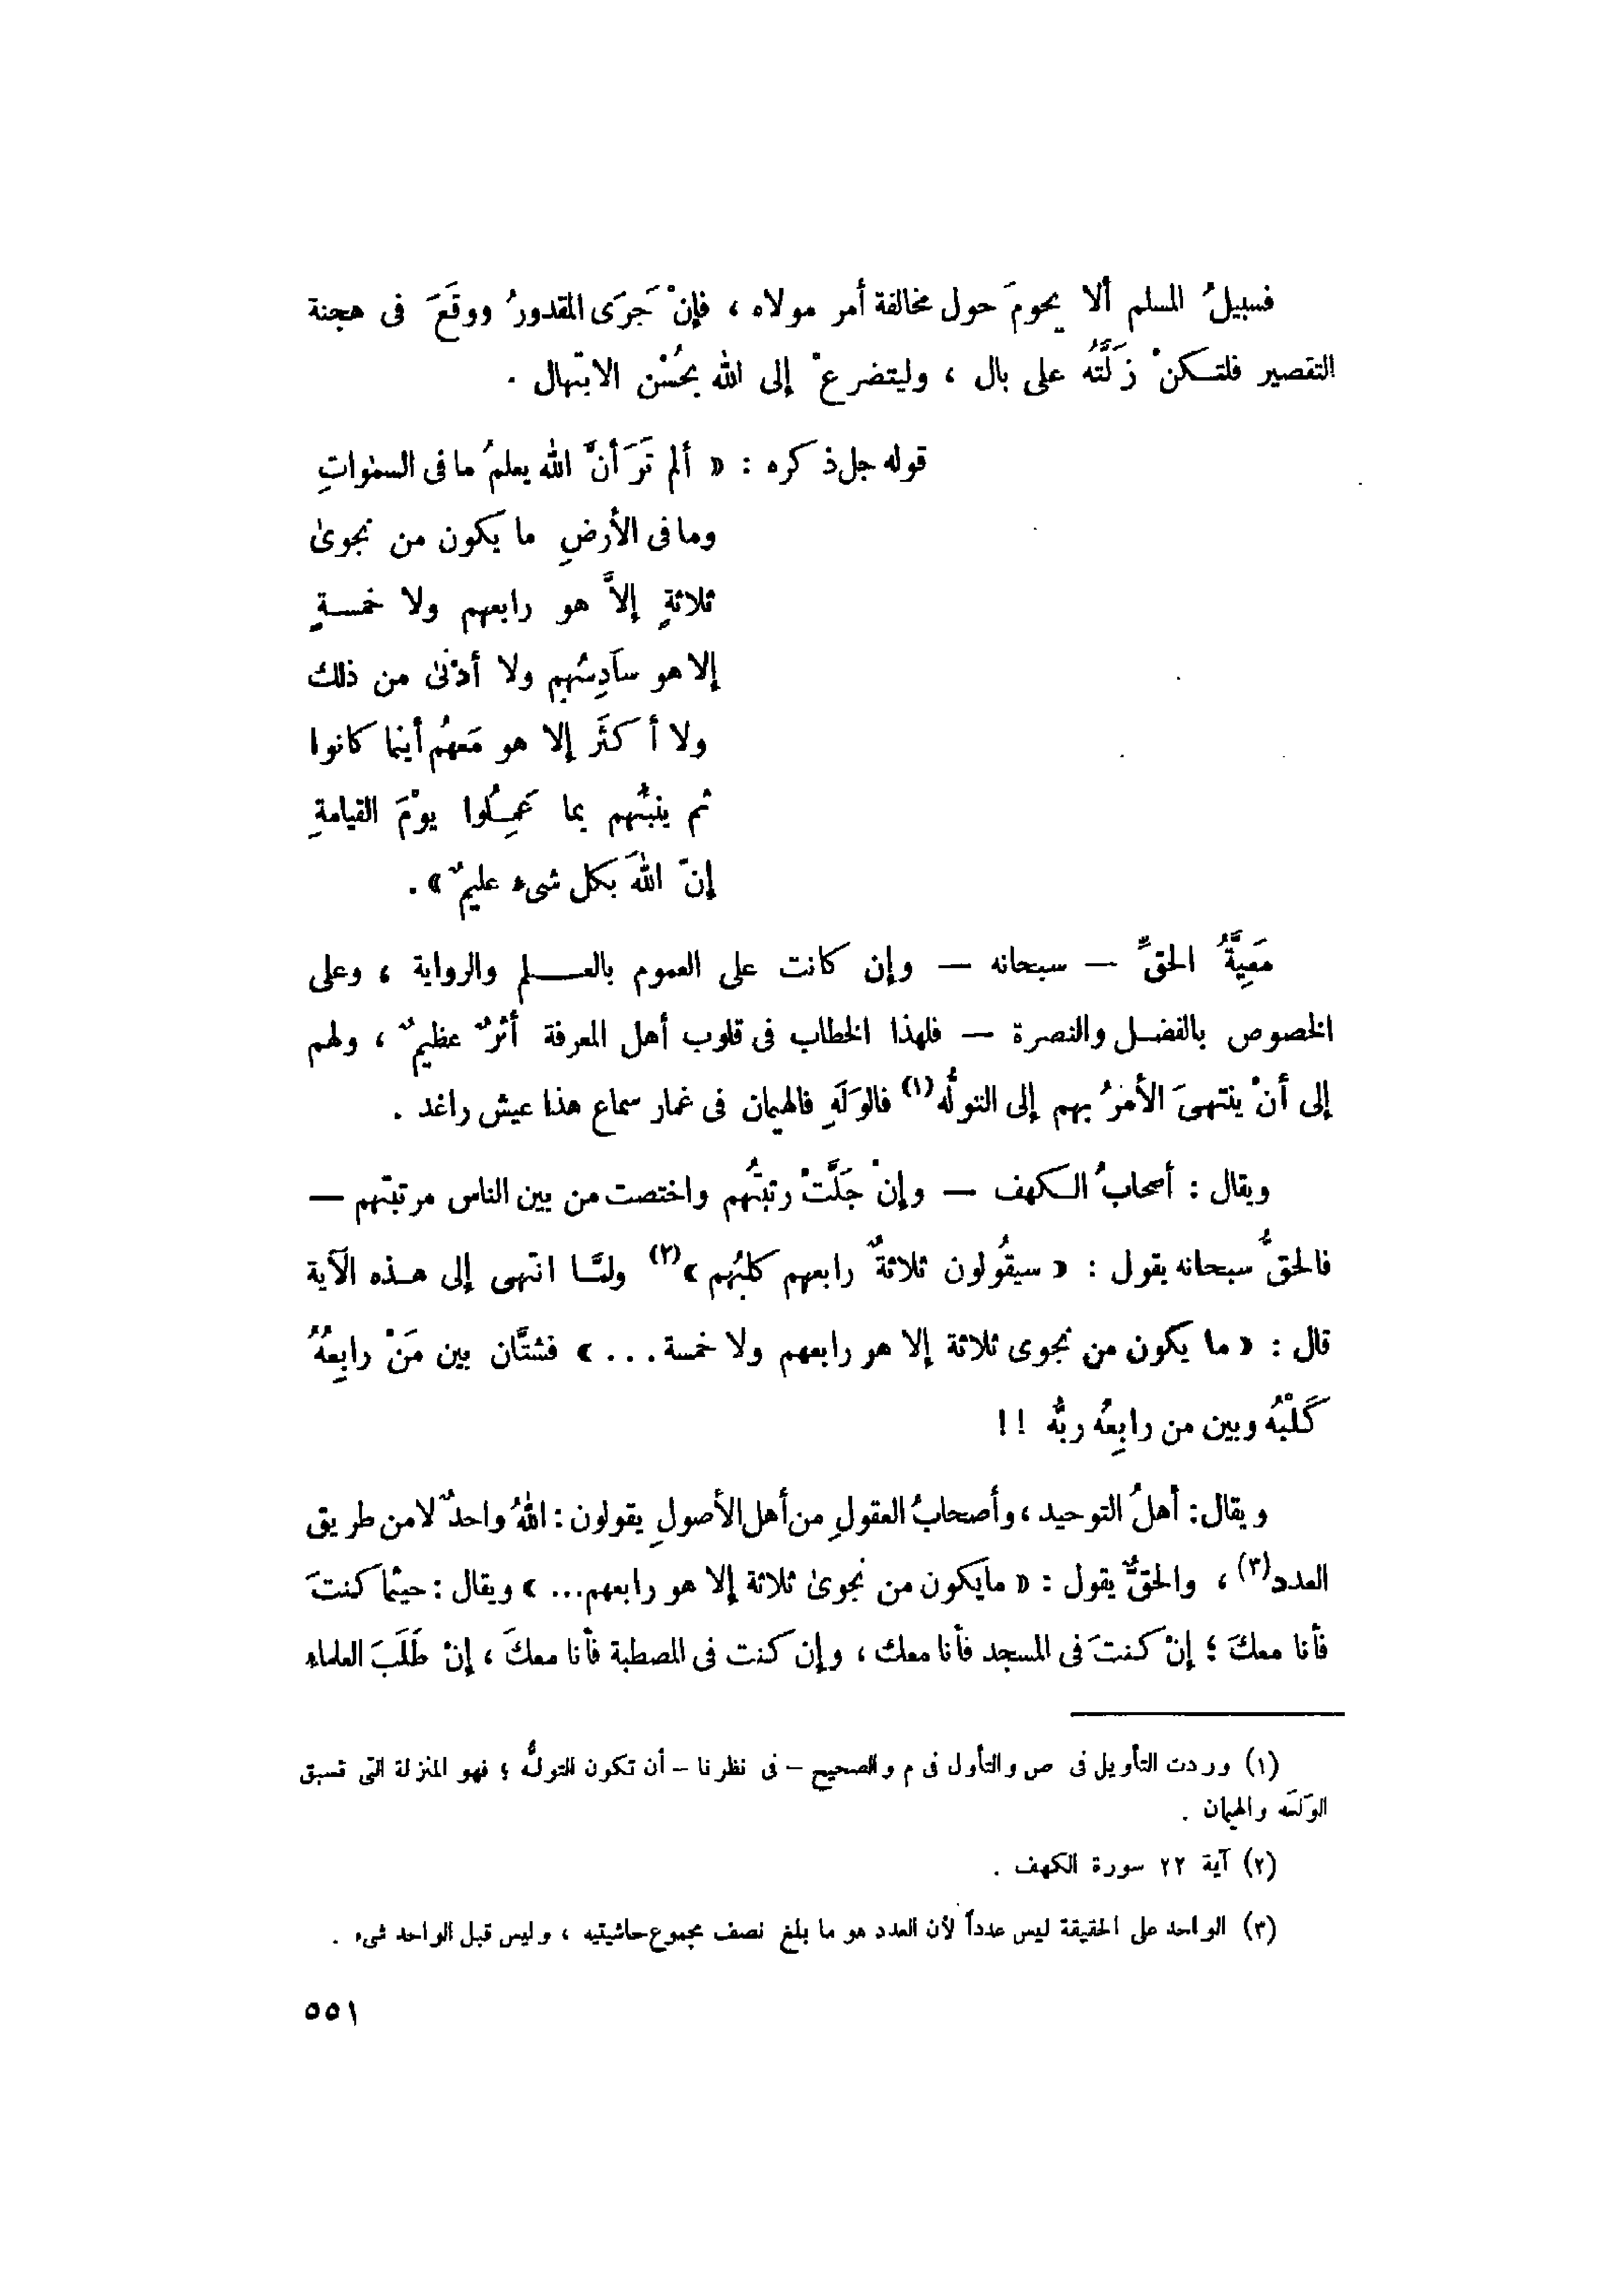 فسبيلُ المسلم ألا يحومَ حول مخالفة أمر مولاه ، فإنْ جَرَى المقدورُ ووقَعَ فى هجنة
التقصير فلتكنْ زَلَّتُه على بال ، وليتضرعْ إلى الله بحُسْن الابتهال .
قوله جل ذكره : « ألم تَرَ أنَّ الله يعلمُ ما فى السمٰواتِ
وما فى الأرضِ ما يكون من نجوىٰ
ثلاثةٍ إلاَّ هو رابعهم ولا خمسةٍ
إلا هو سَادِسُهم ولا أدْنَىٰ من ذلك
ولا أكثَرَ إلا هو مَعهُم أينما كانوا
ثم ينبئُهم بما عَمِلُوا يومَ القيامةِ
إنّ اللهَ بكل شىء عليمٌ » .
مَعِيَّةُ الحقِّ — سبحانه — وإن كانت على العموم بالعلم والرواية ، وعلى
الخصوص بالفضل والنصرة — فلهذا الخطاب فى قلوب أهل المعرفة أثرٌ عظيمٌ ، ولهم
إلى أنْ ينتهىَ الأمْرُ بهم إلى التولُّه (١) فالوَلَهِ فالهيمان فى غمار سماع هذا عيش راغد .
ويقال : أصحابُ الكهف — وإنْ جَلَّتْ رتبتُهم واختصت من بين الناس مرتبتهم —
فالحقُّ سبحانه يقول : « سيقُولون ثلاثةٌ رابعهم كلبُهم » (٢) ولمَّا انتهى إلى هذه الآية
قال : « ما يكون من نجوى ثلاثة إلا هو رابعهم ولا خمسة ... » فشتَّان بين مَنْ رابِعُهُ
كَلْبُه وبين من رابِعُه ربُّه !!
ويقال : أهلُ التوحيد ، وأصحابُ العقولِ من أهل الأصولِ يقولون : اللهُ واحدٌ لا من طريق
العدد (٣) ، والحقُّ يقول : « مايكون من نجوىٰ ثلاثة إلا هو رابعهم... » ويقال : حيثما كنتَ
فأنا معكَ ؛ إنْ كنتَ فى المسجد فأنا معك ، وإن كنت فى المصطبة فأنا معكَ ، إنْ طَلَبَ العلماء
(١) وردت التأويل فى ص والتأول فى م والصحيح – فى نظرنا – أن تكون التولُّه ؛ فهو المنزلة التى تسبق
الوَلَه والهيمان .
(٢) آية ٢٢ سورة الكهف .
(٣) الواحد على الحقيقة ليس عدداً لأن العدد هو ما بلغ نصف مجموع حاشيتيه ، وليس قبل الواحد شىء .
٥٥١